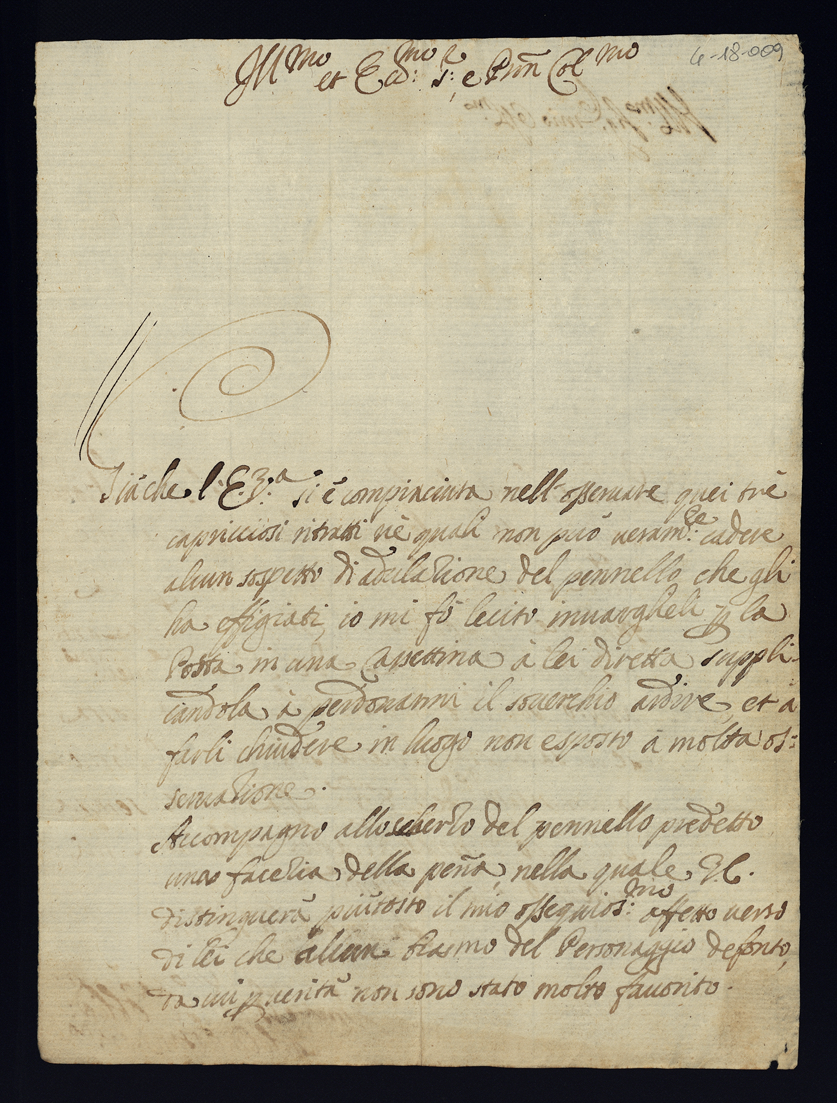 4-18-009
Ill.mo et Ecc.mo S.r e Pron Col.mo
Già che l'E.za si è compiaciuta nell'osservare quei trè
capricciosi ritratti nè quali non può veram.te cadere
alcun sospetto di adulatione del pennello che gli
ha effigiati, io mi fò lecito inviargheli p la
Posta in una Cassettina à lei diretta suppli-
candola à perdonarmi il soverchio ardire, et à
farli chiudere in luogo non esposto à molta os=
servatione.
Accompagno allo scherzo del pennello predetto
una facetia della pena, nella quale V.E.
distinguerà più tosto il mio ossequios.mo affetto verso
di lei che alcun biasmo del Personaggio defonto,
da cui p verità non sono stato molto favorito.